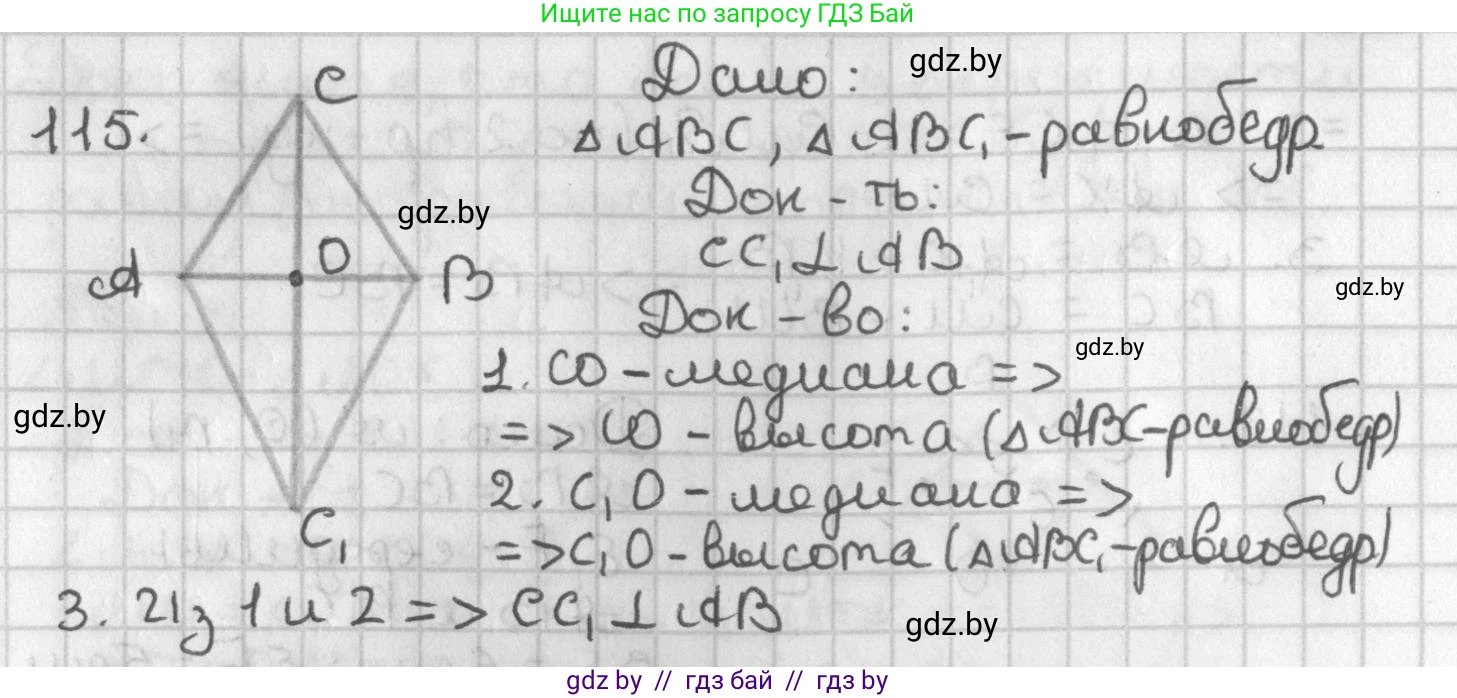 Ищите нас по запросу ГДЗ Бай
gdz.by
115.
C
Дано:
△ABC, △ABC₁ - равнобедр
Док - ть:
gdz.by
CC₁⊥AB
O
A
B
gdz.by
Док - во:
gdz.by
1. CO - медиана =>
gdz.by
=> CO - высота (△ABC - равнобедр)
2. C₁O - медиана =>
C₁
=> C₁O - высота (△ABC₁ - равнобедр)
3. Из 1 и 2 => CC₁⊥AB
gdz.by
gdz.by // гдз бай // гдз by